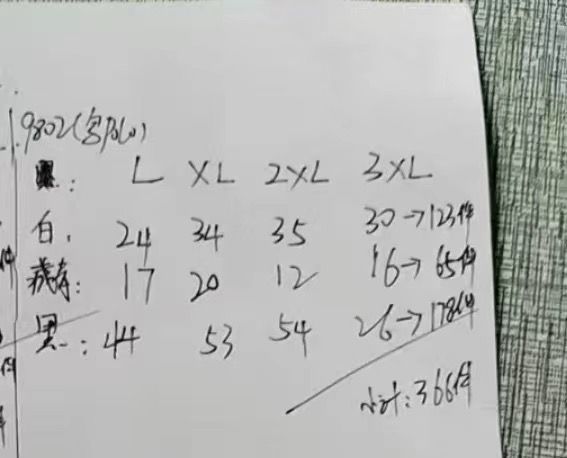 9802(宽Polo)
L XL 2XL 3XL
白: 24 34 35 30→123件
藏青: 17 20 12 16→65件
黑: 44 53 54 26→178件
小计:366件